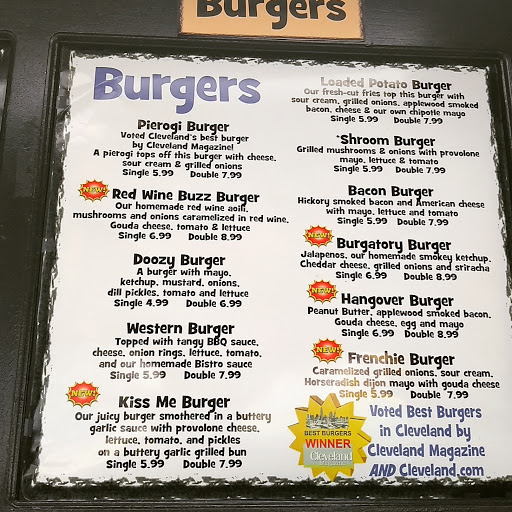 Burgers
Burgers
Pierogi Burger
Voted Cleveland's best burger
by Cleveland Magazine!
A pierogi tops off this burger with cheese,
sour cream & grilled onions
Single 5.99 Double 7.99
NEW!
Red Wine Buzz Burger
Our homemade red wine aoili,
mushrooms and onions caramelized in red wine,
Gouda cheese, tomato & lettuce
Single 6.99 Double 8.99
Doozy Burger
A burger with mayo,
ketchup, mustard, onions,
dill pickles, tomato and lettuce
Single 4.99 Double 6.99
Western Burger
Topped with tangy BBQ sauce,
cheese, onion rings, lettuce, tomato,
and our homemade Bistro sauce
Single 5.99 Double 7.99
NEW!
Kiss Me Burger
Our juicy burger smothered in a buttery
garlic sauce with provolone cheese,
lettuce, tomato, and pickles
on a buttery garlic grilled bun
Single 5.99 Double 7.99
Loaded Potato Burger
Our fresh-cut fries top this burger with
sour cream, grilled onions, applewood smoked
bacon, cheese & our own chipotle mayo
Single 5.99 Double 7.99
'Shroom Burger
Grilled mushrooms & onions with provolone
mayo, lettuce & tomato
Single 5.99 Double 7.99
Bacon Burger
Hickory smoked bacon and American cheese
with mayo, lettuce and tomato
Single 5.99 Double 7.99
NEW!
Burgatory Burger
Jalapenos, our homemade smokey ketchup,
Cheddar cheese, grilled onions and sriracha
Single 6.99 Double 8.99
NEW!
Hangover Burger
Peanut Butter, applewood smoked bacon,
Gouda cheese, egg and mayo
Single 6.99 Double 8.99
NEW!
Frenchie Burger
Caramelized grilled onions, sour cream,
Horseradish dijon mayo with gouda cheese
Single 5.99 Double 7.99
BEST BURGERS
WINNER
Cleveland
Voted Best Burgers
in Cleveland by
Cleveland Magazine
AND Cleveland.com